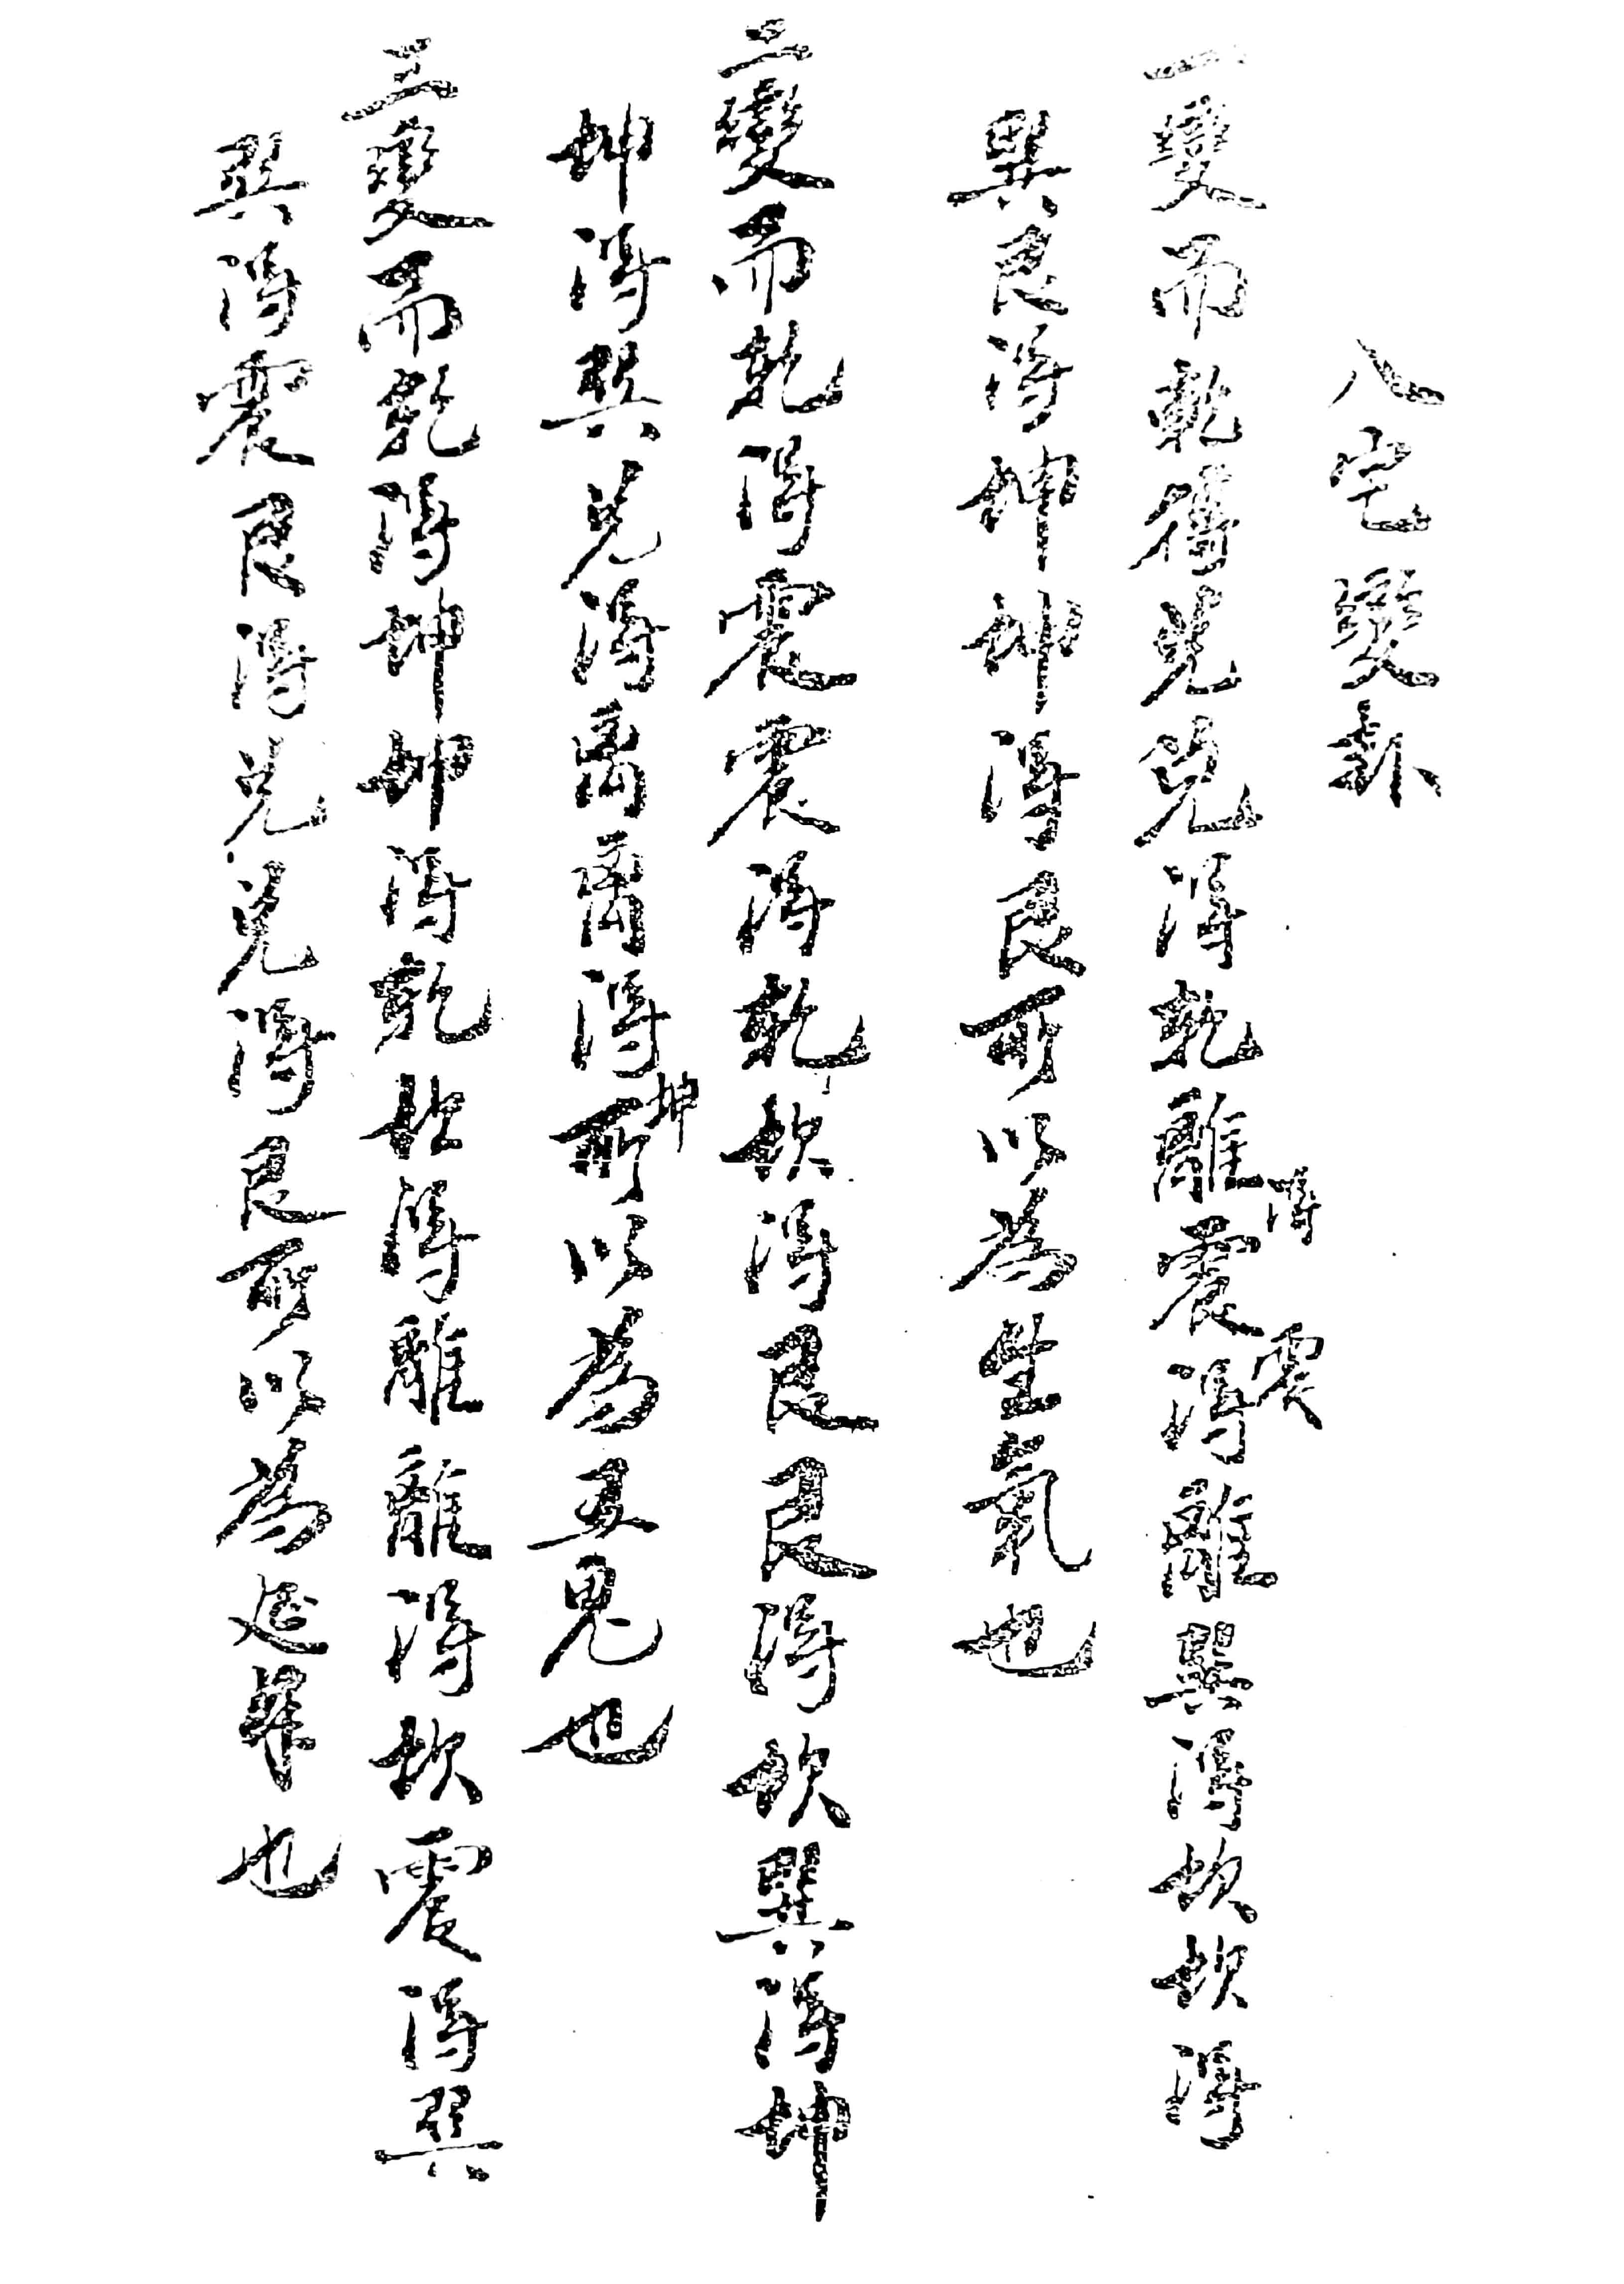 八宅變卦
一變而乾得兌兌得乾離得震震得離巽得坎坎得
巽艮得坤坤得艮所以為生氣也
二變而乾得震震得乾坎得艮艮得坎巽得坤
坤得巽兌得离离得坤所以為五鬼也
三變而乾得坤坤得乾坎得離離得坎震得巽
巽得震艮得兌兌得艮所以為延年也